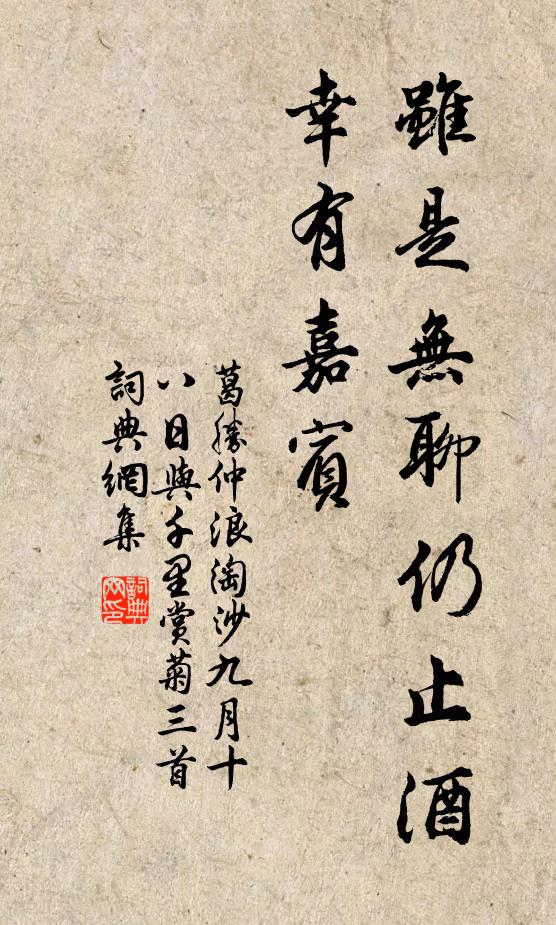 雖是無聊仍止酒
幸有嘉賓
葛勝仲浪淘沙九月十
八日與千里賞菊三首
詞典網集
詞典
网印